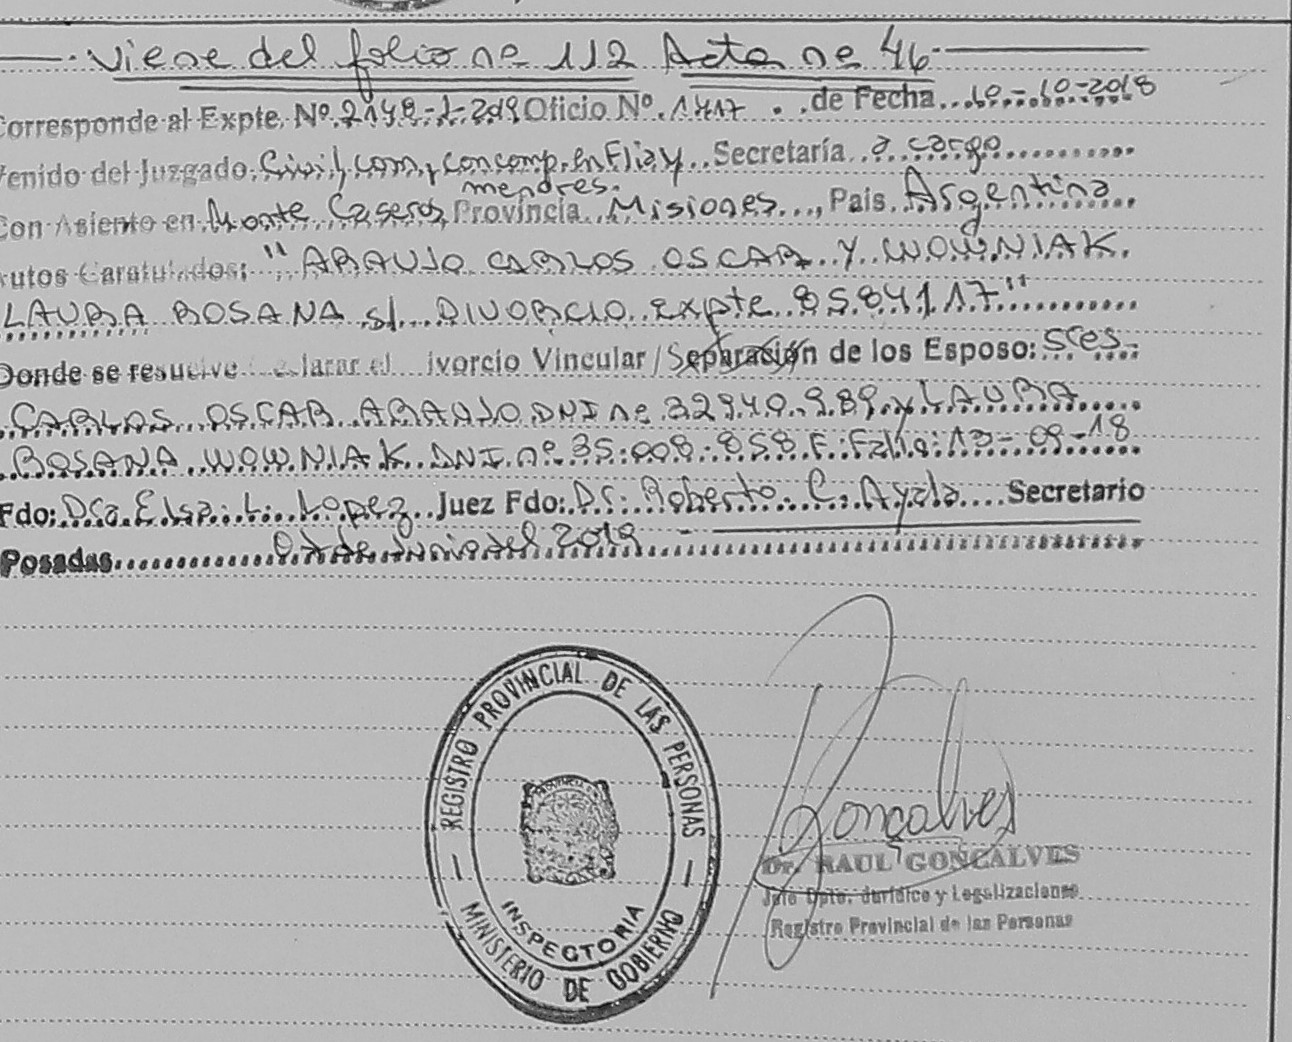 Viene del folio nº 112 Acta nº 46
Corresponde al Expte. Nº 2148-J-2019 Oficio Nº 1717 de Fecha 10-10-2018
Venido del Juzgado Civil, Com, y concomp. en Flia y Secretaría a cargo
menores.
Con Asiento en Monte Caseros, Provincia Misiones, Pais Argentina
Autos Caratulados: "ARAUJO CARLOS OSCAR Y WOWNIAK
LAURA ROSANA s/ DIVORCIO Expte 8584/17"
Donde se resuelve declarar el Divorcio Vincular / Separación de los Esposo: Sres
CARLOS OSCAR ARAUJO DNI nº 32.940.989 y LAURA
ROSANA WOWNIAK DNI nº 35.008.858 F. Fallo: 13-09-18
Fdo: Dra. Elsa L. Lopez Juez Fdo: Dr. Roberto C. Ayala Secretario
Posadas 07 de Junio del 2019
REGISTRO PROVINCIAL DE LAS PERSONAS
INSPECTORIA
MINISTERIO DE GOBIERNO
Gonçalves
Dr. RAUL GONÇALVES
Jefe Dpto. Jurídico y Legalizaciones
Registro Provincial de las Personas